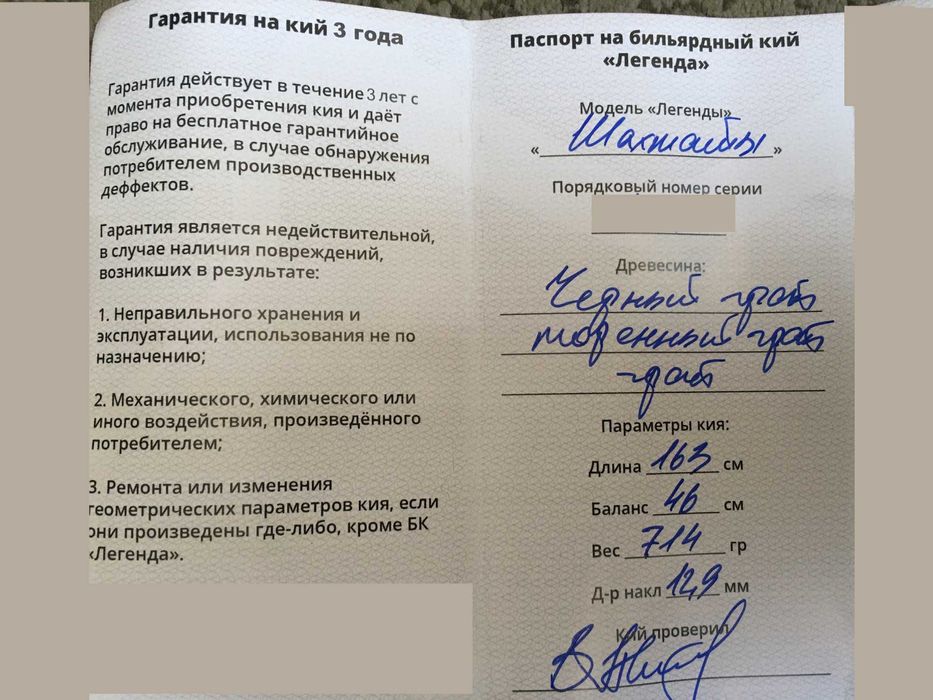 Гарантия на кий 3 года
Гарантия действует в течение 3 лет с
момента приобретения кия и даёт
право на бесплатное гарантийное
обслуживание, в случае обнаружения
потребителем производственных
деффектов.
Гарантия является недействительной,
в случае наличия повреждений,
возникших в результате:
1. Неправильного хранения и
эксплуатации, использования не по
назначению;
2. Механического, химического или
иного воздействия, произведённого
потребителем;
3. Ремонта или изменения
геометрических параметров кия, если
они произведены где-либо, кроме БК
«Легенда».
Паспорт на бильярдный кий
«Легенда»
Модель «Легенды»
« »
Порядковый номер серии
Древесина:
Черный граб
моренный граб
граб
Параметры кия:
Длина 163 см
Баланс 46 см
Вес 714 гр
Д-р накл 12,9 мм
Кий проверил